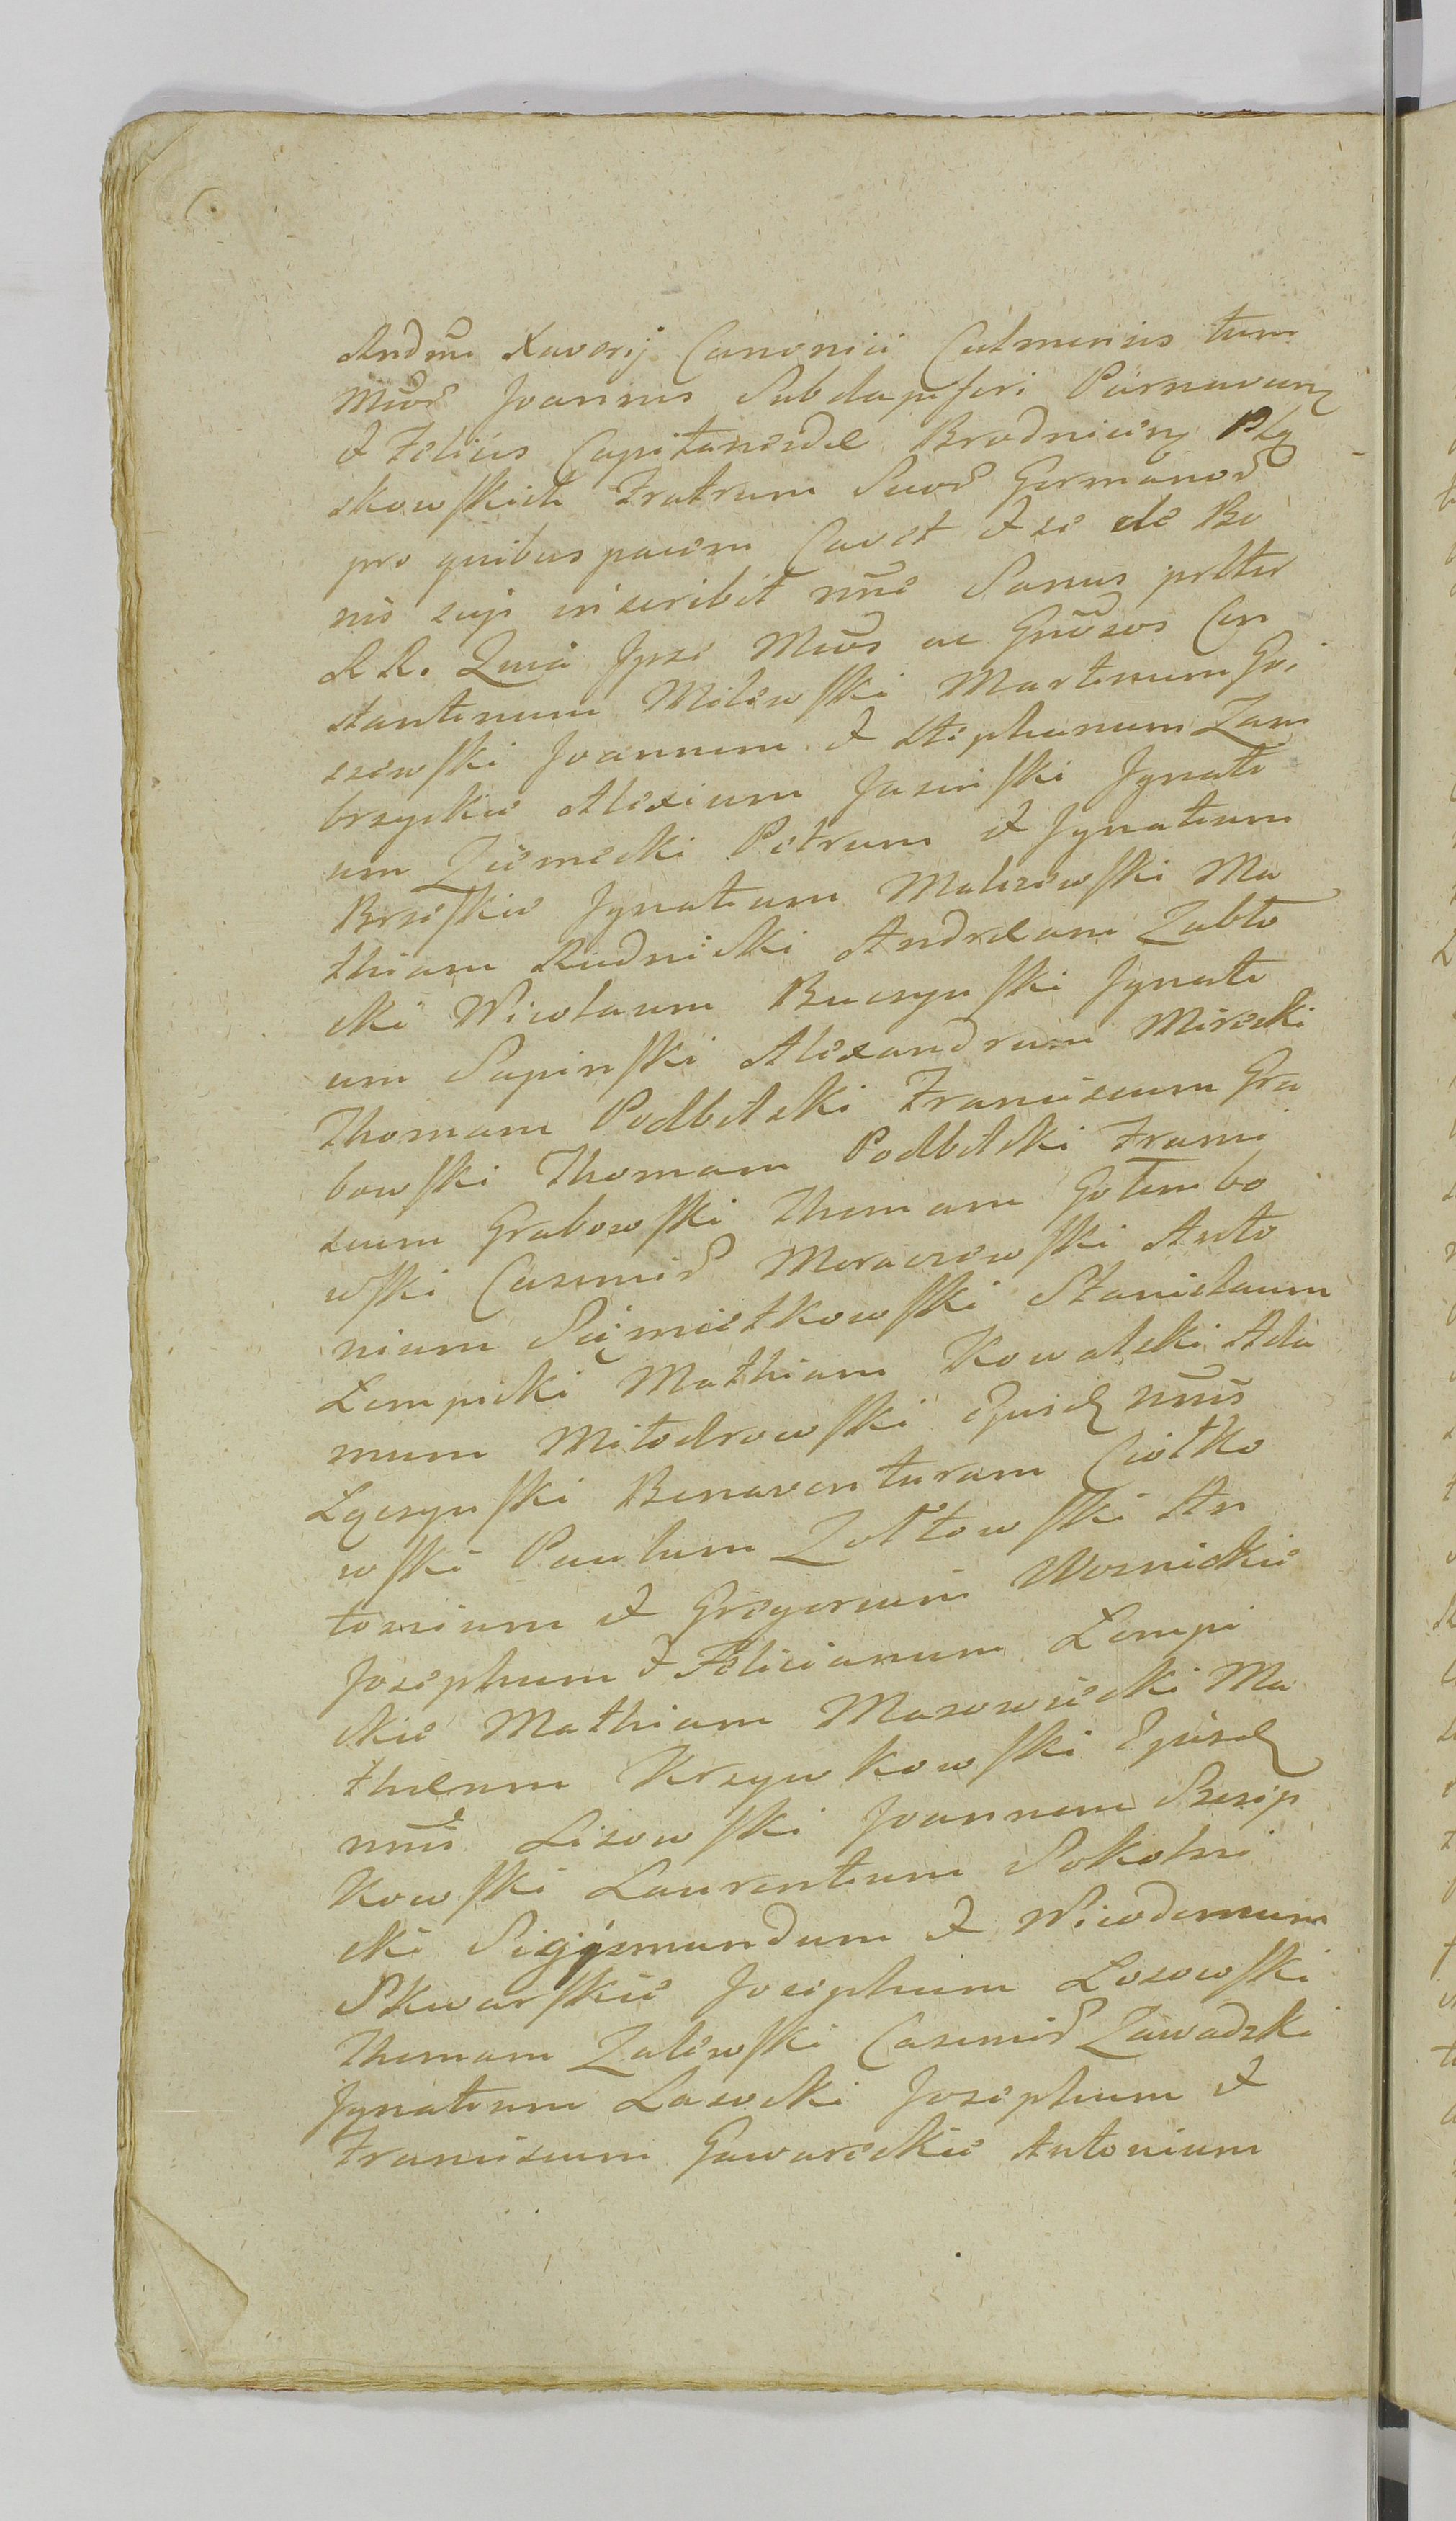 Andmi Xaverij Canonici Culmensis tum
Mcor Joannis Subdapiferi Parnavien
et Felicis Capitaneide Brodnicien Plą
skowskich Fratrum Suor Germanor
pro quibus pacem Cavet et se de Bo
nis suis inscribit nne Sanus pntter
RR. Quia Ipse Mcos ac Gnosos Con
stantinum Milewski Martinum Goi
szewski Joannem et Stephanum Zam
brzyckie Alexium Jasinski Ignati
um Ziemecki Petrum et Ignatium
Brzeskie Ignatium Maliszewski Ma
thiam Rudnicki Andream Zabło
cki Nicolaum Buczynski Ignati
um Sapinski Alexandrum Mirecki
Thomam Podbilski Franciscum Gra
bowski Thomam Podbilski Franci
scum Grabowski Thomam Gołembo
wski Casimir Moraczewski Anto
nium Smietkowski Stanislaum
Lempicki Mathiam Kowalski Ada
mum Młodrowski Ejusd nnis
Łączynski Bonaventuram Ciołko
wski Paulum Zołtowski An
tonium et Gregorium Woznickie
Josephum et Felicianum Lempi
ckie Mathiam Mazowiecki Ma
theum Krzywkowski Ejusd
nnis Lisowski Joannem Szcip
kowski Laurentium Sokolni
cki Sigismundum et Nicodemum
Skwarskie Josephum Łosowski
Thomam Zalewski Casimir Zawadzki
Ignatium Lasocki Josephum et
Franciscum Gawareckie Antonium